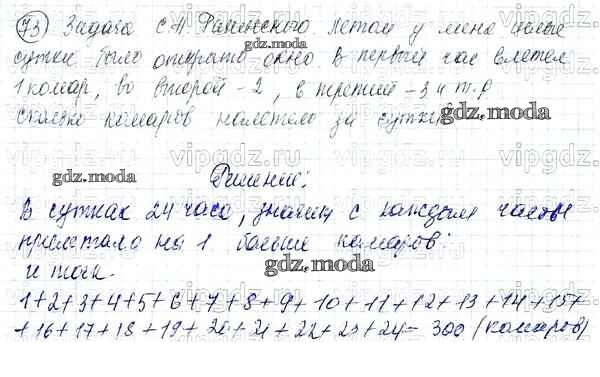 73 Задача С.А. Рачинского. Летом у меня целые
сутки было открыто окно в первый час влетел
1 комар, во второй - 2, в третий - 3 и т.д
сколько комаров налетело за сутки
Решение:
В сутках 24 часа, значит с каждым часом
прилетало на 1 больше комаров.
и так.
1+2+3+4+5+6+7+8+9+10+11+12+13+14+15+
+16+17+18+19+20+21+22+23+24= 300 (комаров)
gdz.moda
gdz.moda
gdz.moda
gdz.moda
vipgdz.ru